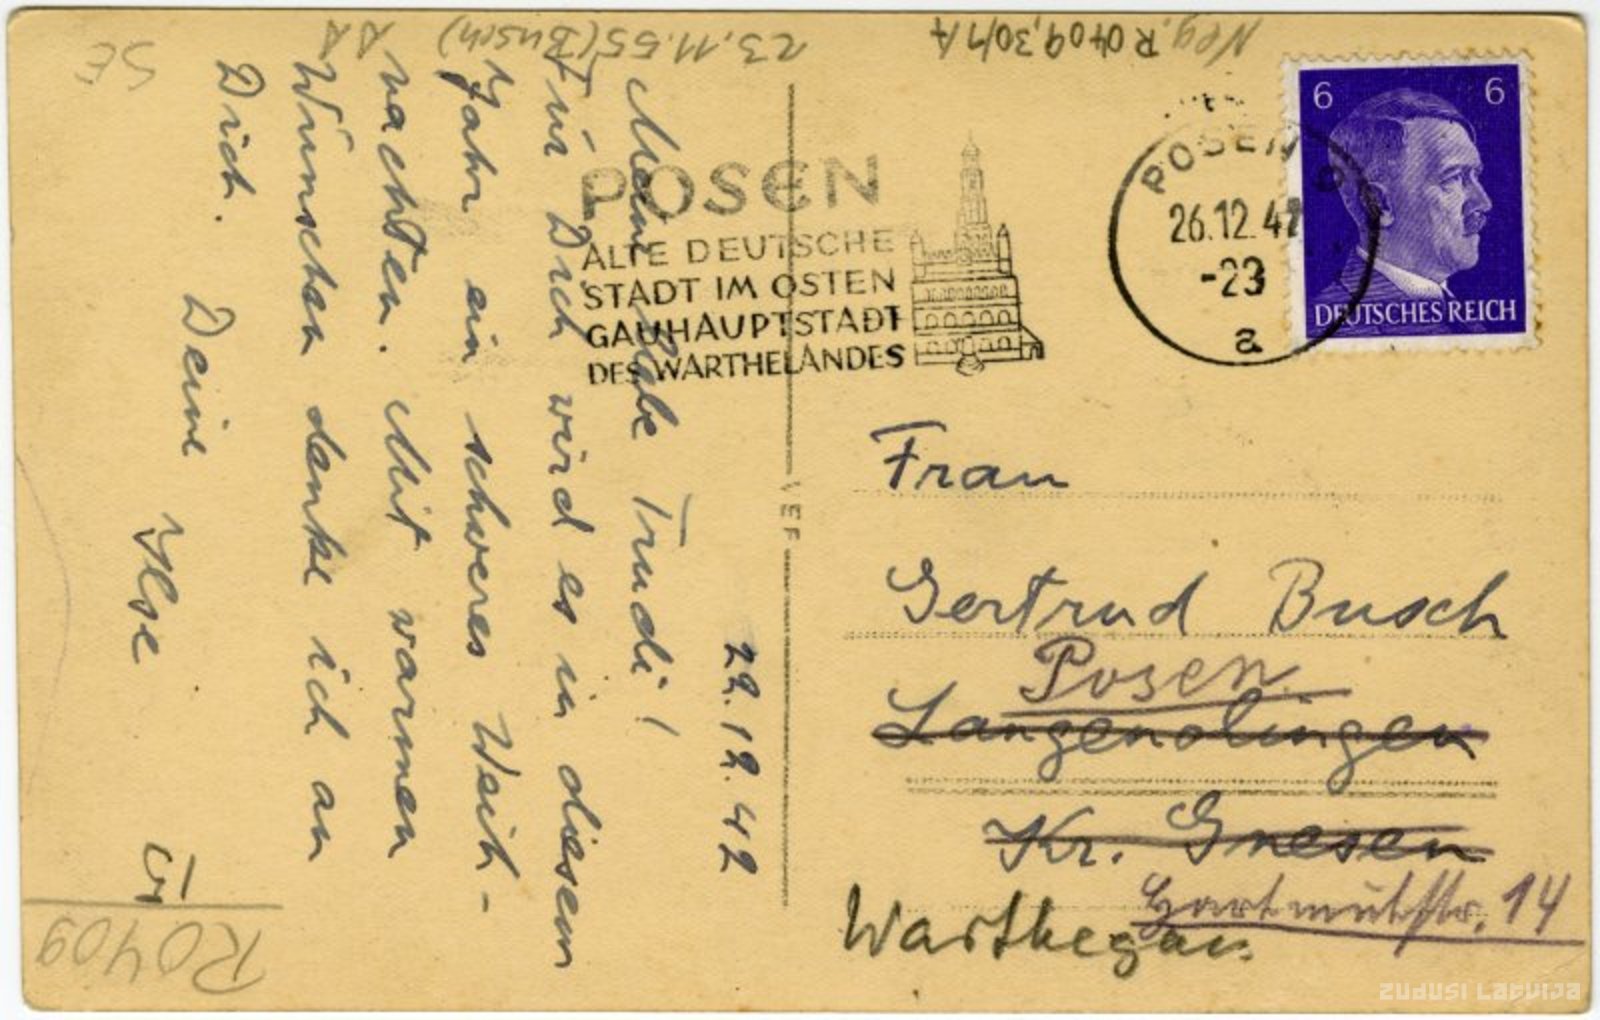 Neg. R0409,30/7A
23.11.55 (Busch)
22.12.42
Meine liebe Trudi!
Für Dich wird es in diesem
Jahr ein schweres Weih-
nachten. Mit warmen
Wünschen denke ich an
Dich. Deine Ilse
R0409
VEF
POSEN
ALTE DEUTSCHE
STADT IM OSTEN
GAUHAUPTSTADT
DES WARTHELANDES
POSEN
26.12.42
-23
a
6 6
DEUTSCHES REICH
Frau
Gertrud Busch
Posen
Langenolingen
Kr. Gnesen
Hartmutstr. 14
Warthegau
ZUDUSI LATVIJA